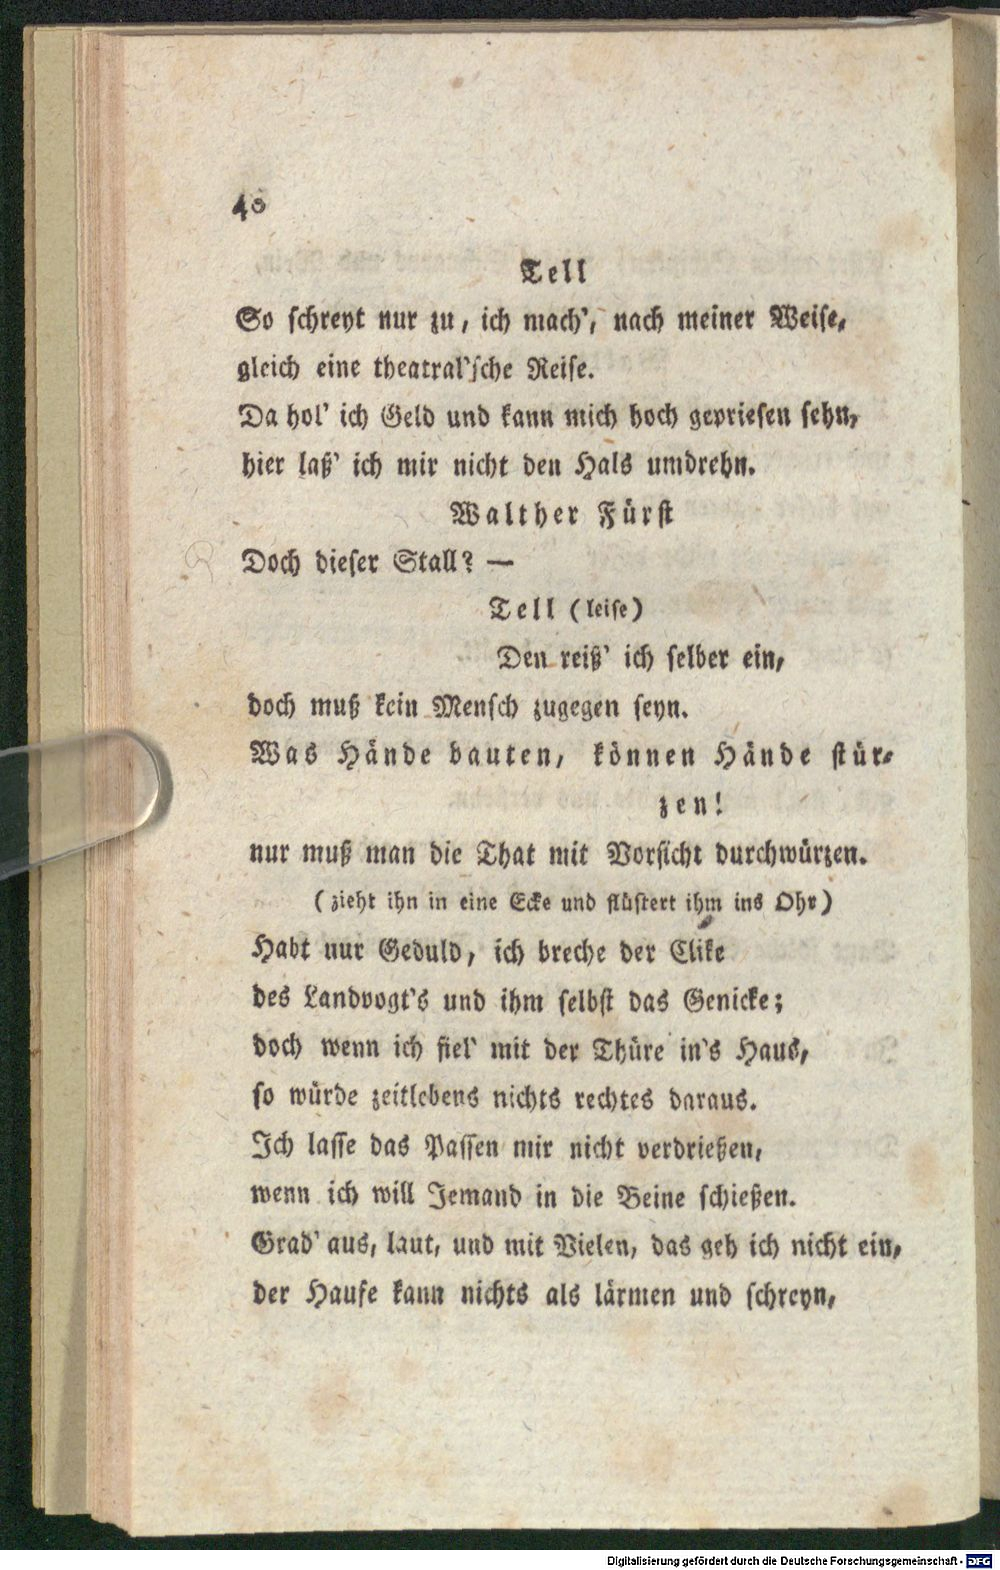 40
Tell
So schreyt nur zu, ich mach', nach meiner Weise,
gleich eine theatral'sche Reise.
Da hol' ich Geld und kann mich hoch gepriesen sehn,
hier laß' ich mir nicht den Hals umdrehn.
Walther Fürst
Doch dieser Stall? —
Tell (leise)
Den reiß' ich selber ein,
doch muß kein Mensch zugegen seyn.
Was Hände bauten, können Hände stür-
zen!
nur muß man die That mit Vorsicht durchwürzen.
(zieht ihn in eine Ecke und flüstert ihm ins Ohr)
Habt nur Geduld, ich breche der Clike
des Landvogt's und ihm selbst das Genicke;
doch wenn ich fiel' mit der Thüre in's Haus,
so würde zeitlebens nichts rechtes daraus.
Ich lasse das Passen mir nicht verdrießen,
wenn ich will Jemand in die Beine schießen.
Grad' aus, laut, und mit Vielen, das geh ich nicht ein,
der Haufe kann nichts als lärmen und schreyn,
Digitalisierung gefördert durch die Deutsche Forschungsgemeinschaft - DFG